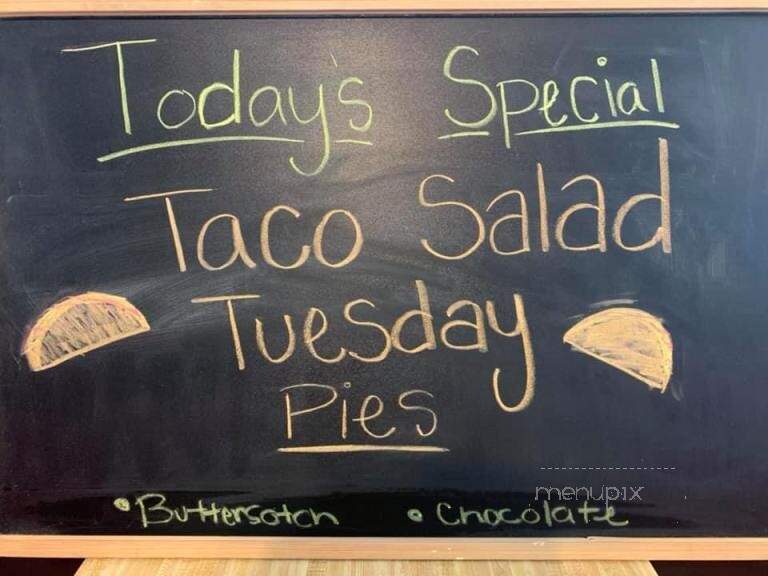 Today's Special
Taco Salad
Tuesday
Pies
menupix
• Buttersotch • Chocolate